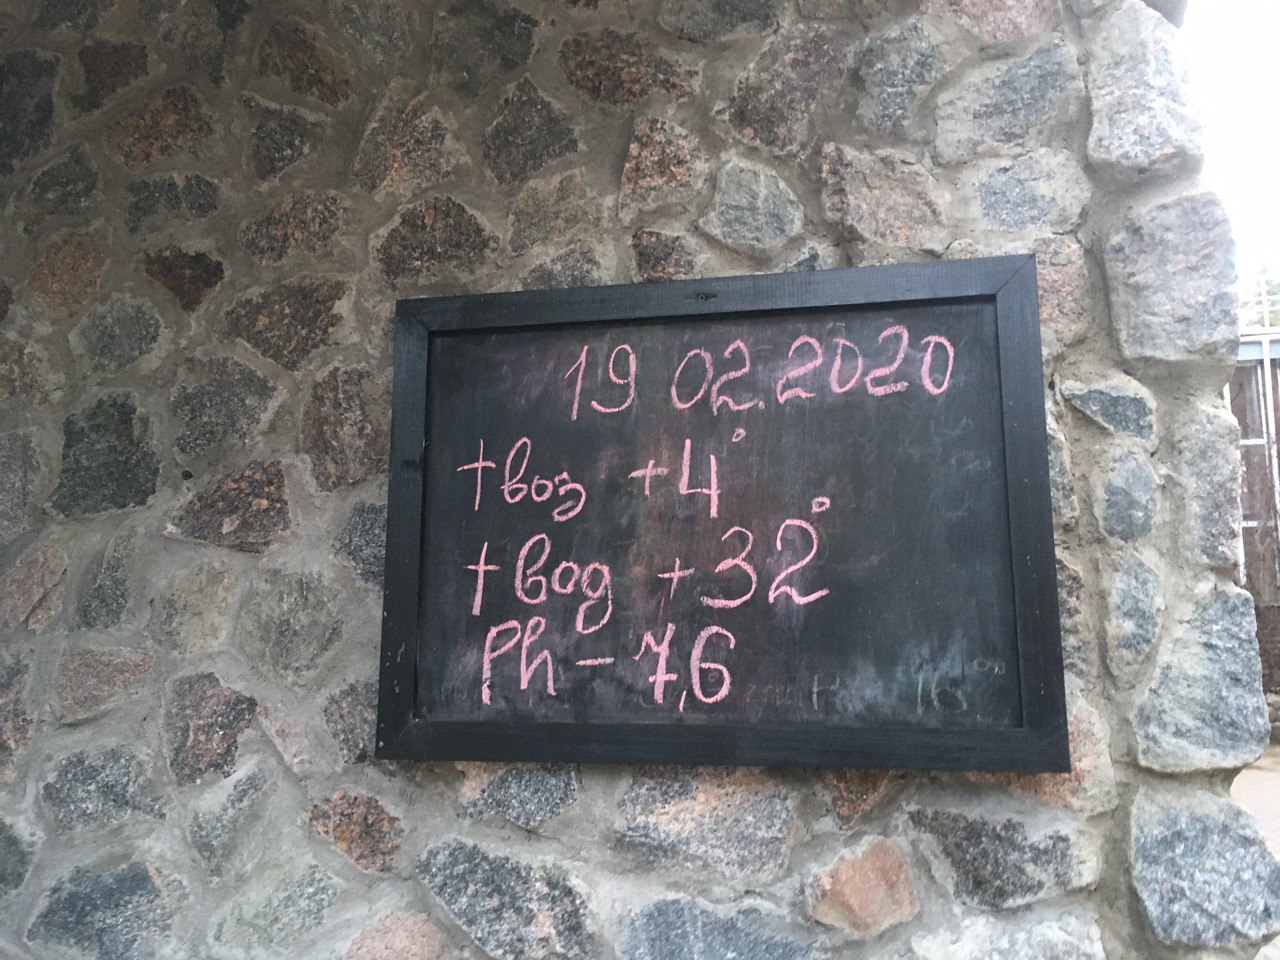 19 02.2020
tвоз +4°
tвод +32°
Ph - 7,6